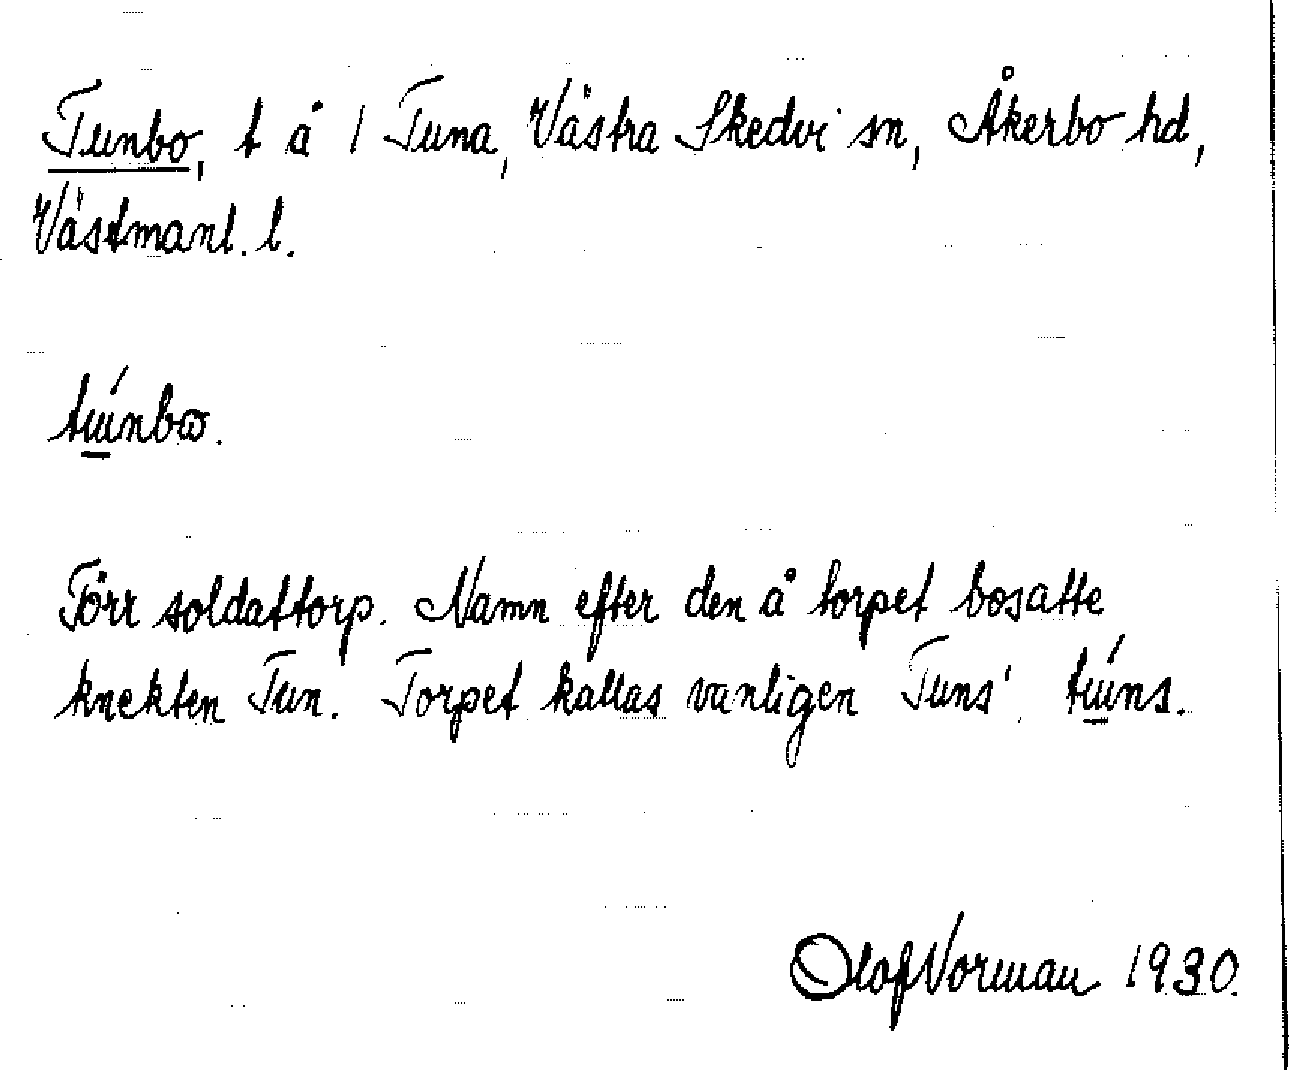 Tunbo, t å 1 Tuna, Västra Skedvi sn, Åkerbo hd,
Västmanl. l.
tú̲nbω.
Förr soldattorp. Namn efter den å torpet bosatte
knekten Tun. Torpet kallas vanligen Tuns' tú̲ns.
Olof Norman 1930.